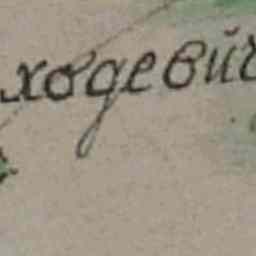 ходевич